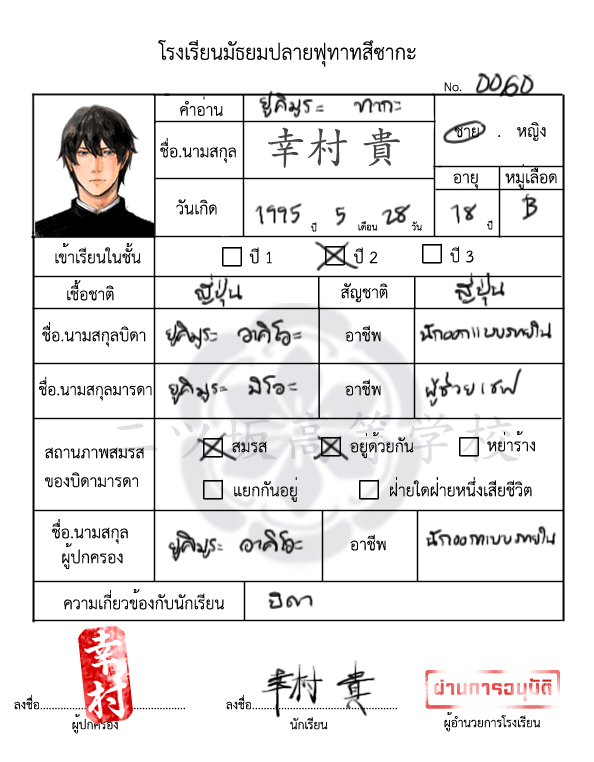 โรงเรียนมัธยมปลายฟุทาทสึซากะ
No. 0060
คำอ่าน ยูคิมูระ ทากะ
ชาย . หญิง
ชื่อ.นามสกุล 幸村 貴
อายุ หมู่เลือด
วันเกิด 1995 ปี 5 เดือน 28 วัน 18 ปี B
เข้าเรียนในชั้น ปี 1 ปี 2 ปี 3
เชื้อชาติ ญี่ปุ่น สัญชาติ ญี่ปุ่น
ชื่อ.นามสกุลบิดา ยูคิมูระ อาคิโอะ อาชีพ นักออกแบบภายใน
ชื่อ.นามสกุลมารดา ยูคิมูระ มิโอะ อาชีพ ผู้ช่วยเชฟ
二ツ坂高等学校
สถานภาพสมรส
ของบิดามารดา
สมรส อยู่ด้วยกัน หย่าร้าง
แยกกันอยู่ ฝ่ายใดฝ่ายหนึ่งเสียชีวิต
ชื่อ.นามสกุล
ผู้ปกครอง
ยูคิมูระ อาคิโอะ อาชีพ นักออกแบบภายใน
ความเกี่ยวข้องกับนักเรียน บิดา
幸村
幸村 貴
ผ่านการอนุมัติ
ลงชื่อ ลงชื่อ
ผู้ปกครอง นักเรียน ผู้อำนวยการโรงเรียน